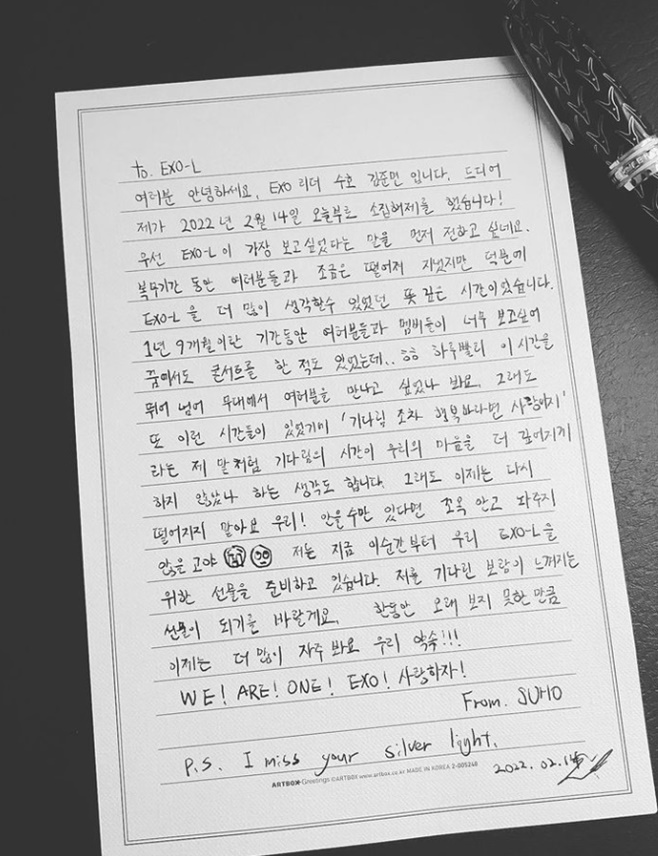 to. EXO-L
여러분 안녕하세요, EXO 리더 수호 김준면 입니다. 드디어
제가 2022년 2월 14일 오늘부로 소집해제를 했습니다!
우선 EXO-L이 가장 보고싶었다는 말을 먼저 전하고 싶네요.
복무기간 동안 여러분들과 조금은 떨어져 지냈지만 덕분에
EXO-L을 더 많이 생각할수 있었던 뜻 깊은 시간이었습니다.
1년 9개월이란 기간동안 여러분들과 멤버들이 너무 보고싶어
꿈에서도 콘서트를 한 적도 있었는데.. ㅎㅎ 하루빨리 이 시간을
뛰어 넘어 무대에서 여러분을 만나고 싶었나 봐요. 그래도
또 이런 시간들이 있었기에 '기다림 조차 행복하다면 사랑이지'
라는 제 말처럼 기다림의 시간이 우리의 마음을 더 깊어지게
하지 않았나 하는 생각도 합니다. 그래도 이제는 다시
떨어지지 말아요 우리! 안을수만 있다면 꼬옥 안고 놔주지
않을 고야 저는 지금 이순간부터 우리 EXO-L을
위한 선물을 준비하고 있습니다. 저를 기다린 보람이 느껴지는
선물이 되기를 바랄게요. 한동안 오래 보지 못한 만큼
이제는 더 많이 자주 봐요 우리 약속!!!
WE! ARE! ONE! EXO! 사랑하자!
From. SUHO
P.S. I miss your silver light.
2022. 02. 14
ARTBOX Greetings ©ARTBOX www.artbox.co.kr MADE IN KOREA 2-005248